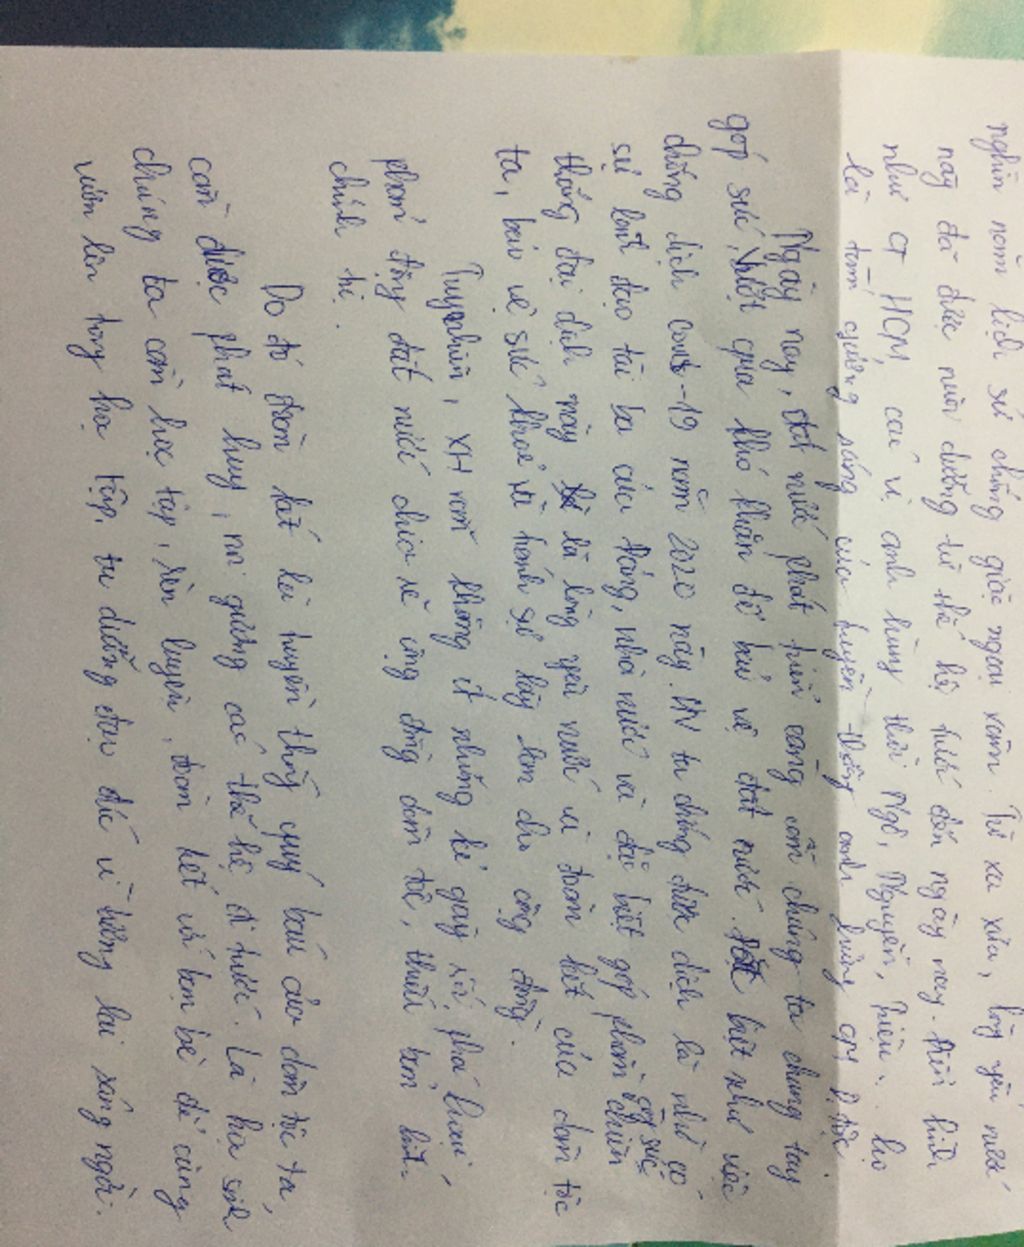 nghìn năm lịch sử chống giặc ngoại xâm. Từ xa xưa, lòng yêu nước
này đã được nuôi dưỡng từ thế hệ trước đến ngày nay. Điển hình
như CT HCM, các vị anh hùng thời Ngô, Nguyễn, Triệu. Họ
là tấm gương sáng của truyền thống anh hùng CM d tộc
Ngày nay, đất nước phát triển càng cần chúng ta chung tay
góp sức vượt qua khó khăn để bảo vệ đất nước. Đặc biệt như việc
chống dịch covid-19 năm 2020 này. VN ta chống được dịch là nhờ có
sự lãnh đạo tài ba của Đảng, nhà nước và đặc biệt góp phần góp sức chiến
thắng đại dịch này là lòng yêu nước và đoàn kết của dân tộc
ta, bảo vệ sức khoẻ và hành sự lây lan cho cộng đồng.
Tuy nhiên, XH vẫn không ít những kẻ gây rối, phá hoại
phản động đất nước chia rẽ cộng đồng dân tộc, thiếu bản lĩnh
chính trị.
Do đó đoàn kết là truyền thống quý báu của dân tộc ta,
cần được phát huy, noi gương các thế hệ đi trước. Là học sinh
chúng ta cần học tập, rèn luyện, đoàn kết với bạn bè để cùng
vươn lên trong học tập, tu dưỡng đạo đức vì tương lai sáng ngời.